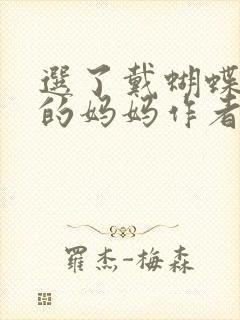 選了戴蝴蝶
的妈妈作者
羅杰-梅森